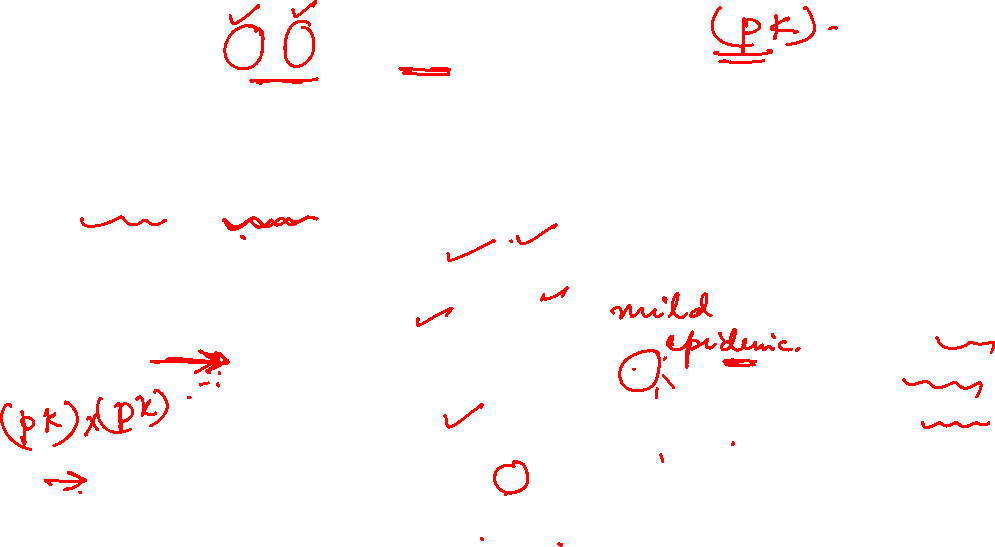 (pk).
mild
epidemic.
(pk)x(pk)